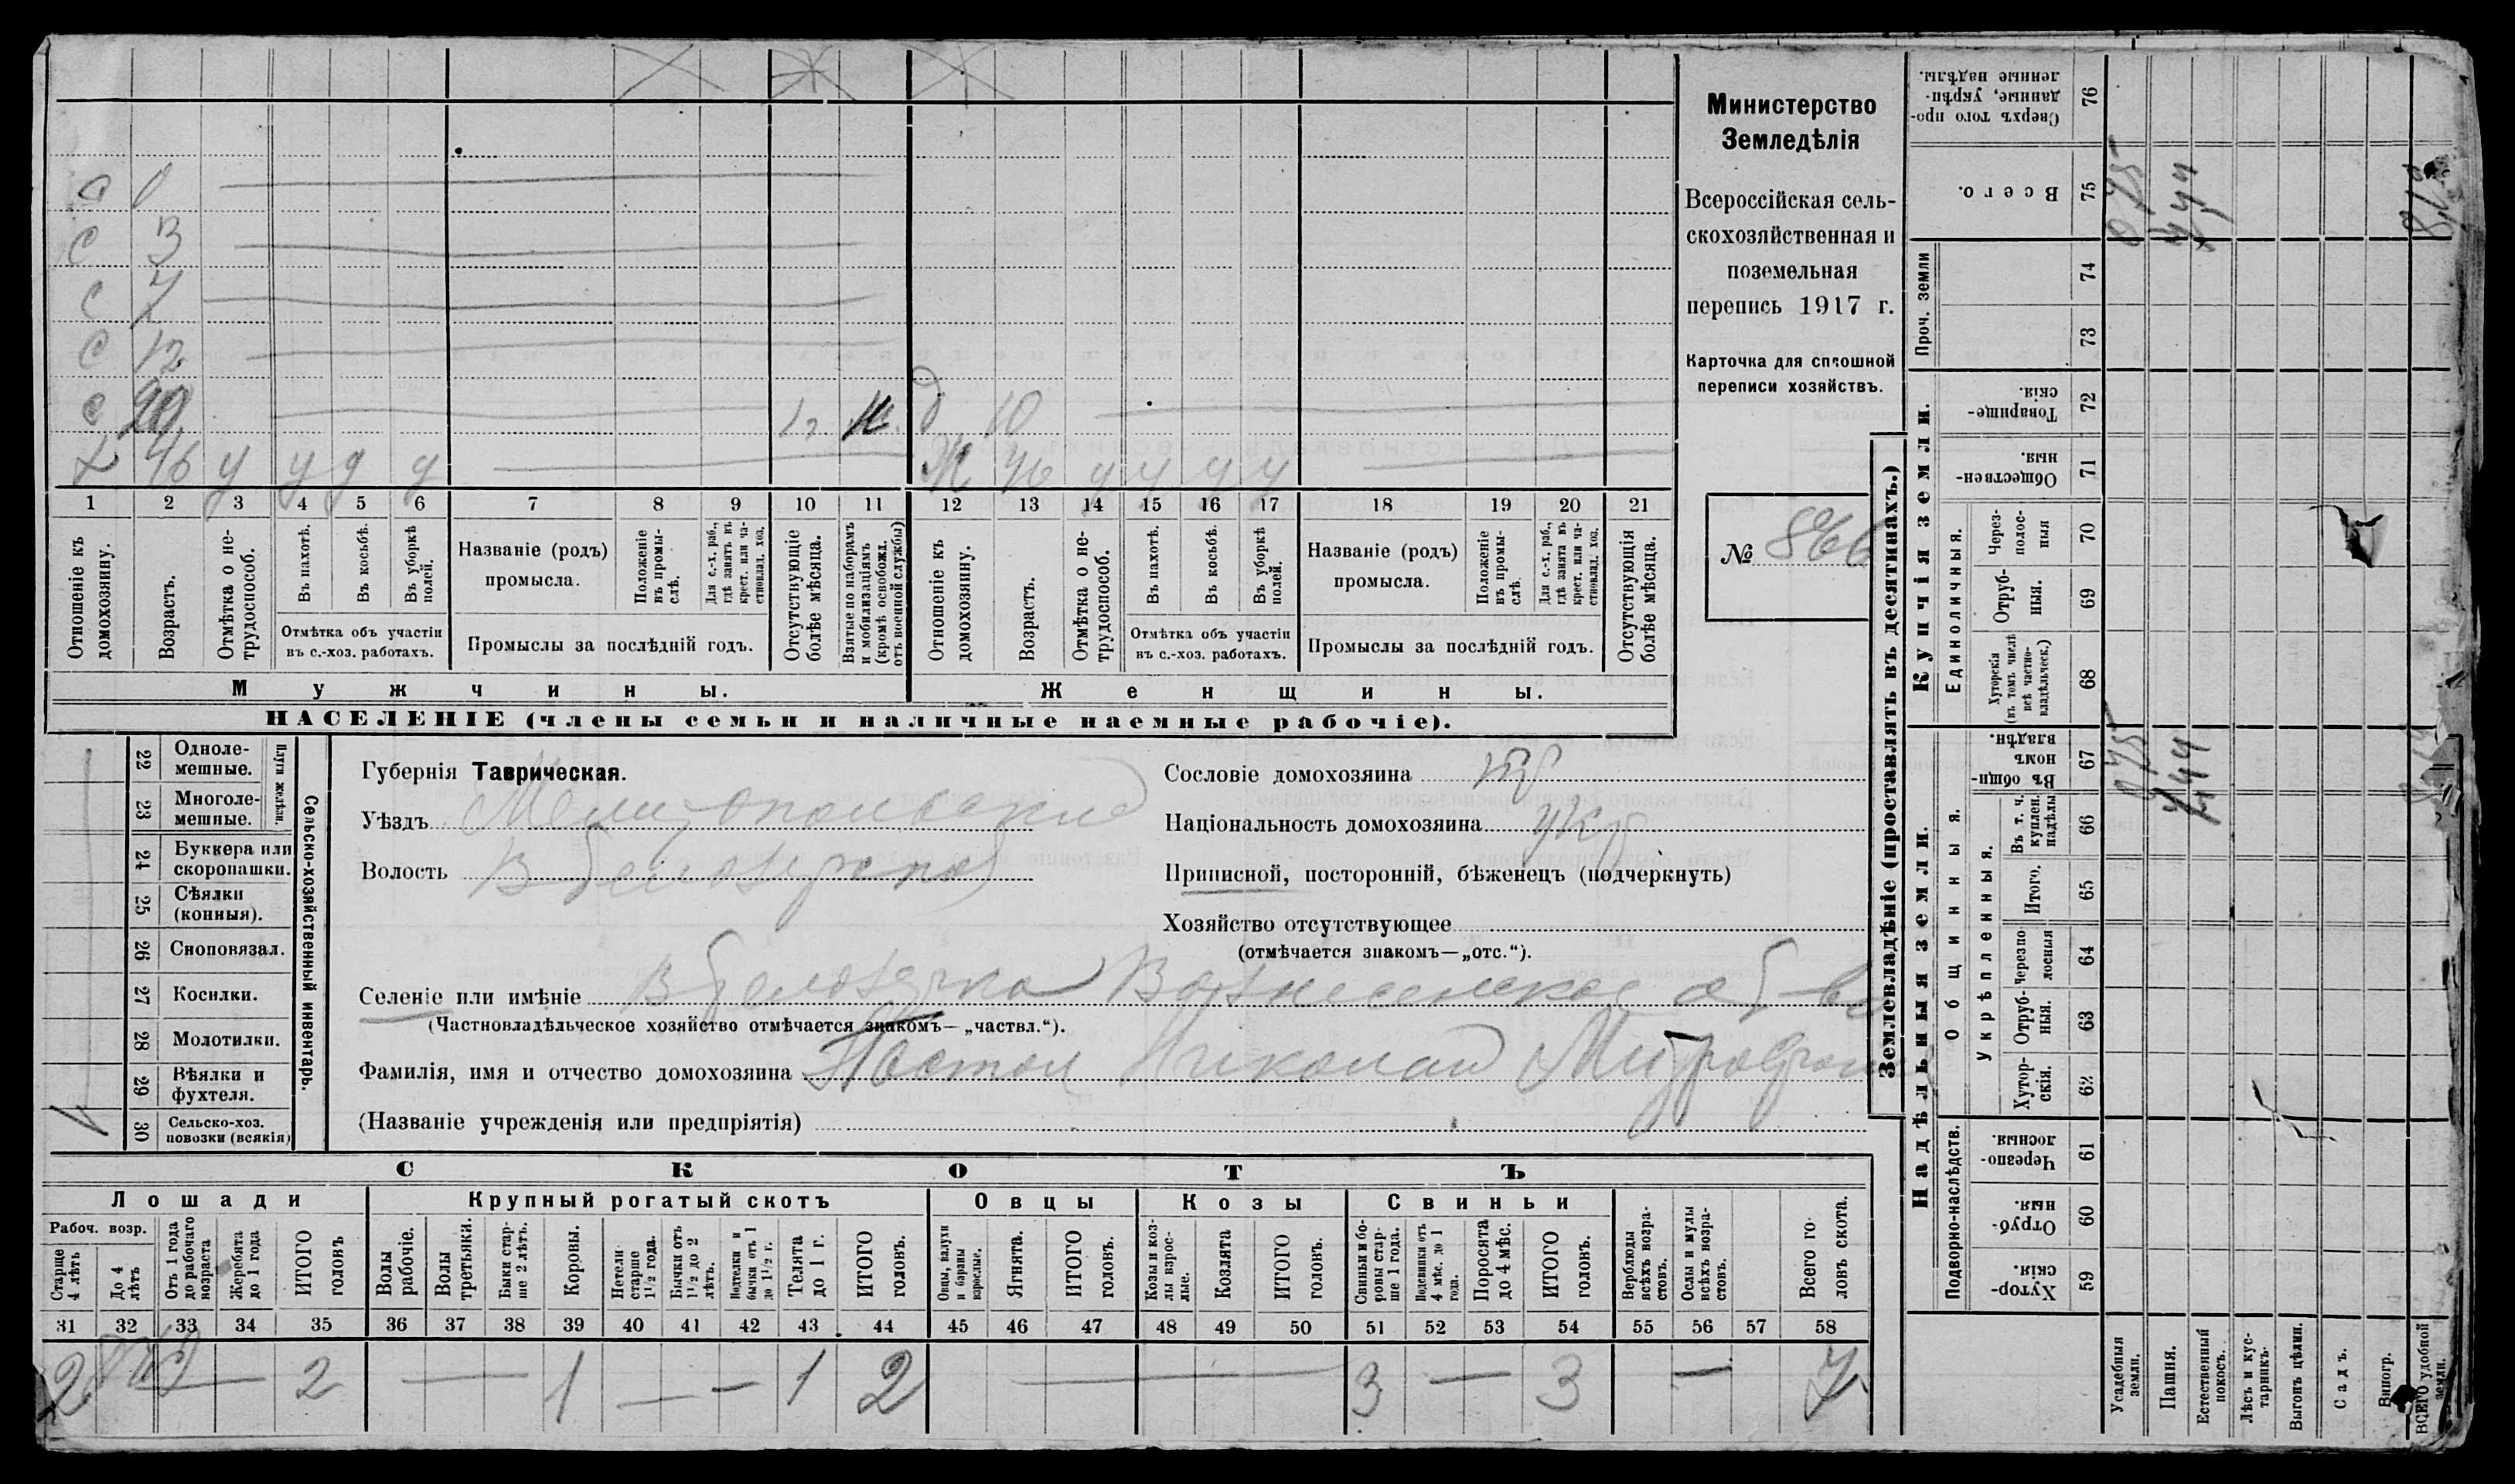 Министерство
Земледѣлія
Всероссійская сель-
скохозяйственная и
поземельная
перепись 1917 г.
Карточка для сплошной
переписи хозяйствъ.
№ 866
с
с 3
с 7
с 12
с 20 12
д 10
х 46 у у у у
ж 46 у у у у
1 2 3 4 5 6 7 8 9 10 11 12 13 14 15 16 17 18 19 20 21
Отношеніе къ домохозяину.
Возрастъ.
Отмѣтка о не-трудоспособ.
Въ пахотѣ.
Въ косьбѣ.
Въ уборкѣ полей.
Отмѣтка объ участіи
въ с.-хоз. работахъ.
Названіе (родъ)
промысла.
Положеніе въ промы-слѣ.
Для с.-х. раб., гдѣ занятъ въ крест. или ча-стновлад. хоз.
Промыслы за послѣдній годъ.
Отсутствующіе болѣе мѣсяца.
Взятые по наборамъ и мобилизаціямъ (кромѣ освобожд. отъ военной службы)
Отношеніе къ домохозяину.
Возрастъ.
Отмѣтка о не-трудоспособ.
Въ пахотѣ.
Въ косьбѣ.
Въ уборкѣ полей.
Отмѣтка объ участіи
въ с.-хоз. работахъ.
Названіе (родъ)
промысла.
Положеніе въ промы-слѣ.
Для с.-х. раб., гдѣ занята въ крест. или ча-стновлад. хоз.
Промыслы за послѣдній годъ.
Отсутствующія болѣе мѣсяца.
Мужчины.
Женщины.
НАСЕЛЕНІЕ (члены семьи и наличные наемные рабочіе).
Сельско-хозяйственный инвентарь.
Плуги желѣзн.
22 Одноле-мешные.
23 Многоле-мешные.
24 Буккера или скоропашки.
25 Сѣялки (конныя).
26 Сноповязал.
27 Косилки.
28 Молотилки.
29 Вѣялки и фухтеля.
30 Сельско-хоз. повозки (всякія) 1
Губернія Таврическая.
Уѣздъ Мелитопольский
Волость В Белозерская
Сословіе домохозяина кр
Національность домохозяина укр
Приписной, посторонній, бѣженецъ (подчеркнуть)
Хозяйство отсутствующее
(отмѣчается знакомъ—„отс.“).
Селеніе или имѣніе В Белозерка Вознесенское об-во
(Частновладѣльческое хозяйство отмѣчается знакомъ—„частвл.“).
Фамилія, имя и отчество домохозяина Николай Митрофан
(Названіе учрежденія или предпріятія)
СКОТЪ
Лошади
Рабоч. возр.
Старше 4 лѣтъ
До 4 лѣтъ
Отъ 1 года до рабочаго возраста
Жеребята до 1 года
ИТОГО головъ
Крупный рогатый скотъ
Волы рабочіе.
Волы третьяки.
Быки стар-ше 2 лѣтъ.
Коровы.
Нетели старше 1½ года.
Бычки отъ 1½ до 2 лѣтъ.
Подтелки и бычки отъ 1 до 1½ г.
Телята до 1 г.
ИТОГО головъ.
Овцы
Овцы, валухи и бараны взрослые.
Ягнята.
ИТОГО головъ.
Козы
Козы и коз-лы взрос-лые.
Козлята
ИТОГО головъ.
Свиньи
Свиньи и бо-ровы стар-ше 1 года.
Подсвинки отъ 4 мѣс. до 1 года.
Поросята до 4 мѣс.
ИТОГО головъ.
Верблюды всѣхъ возра-стовъ.
Ослы и мулы всѣхъ возра-стовъ.
Всего го-ловъ скота.
31 32 33 34 35 36 37 38 39 40 41 42 43 44 45 46 47 48 49 50 51 52 53 54 55 56 57 58
2 — 2 — 1 — — 1 2 — 3 — 3 — 7
Землевладѣніе (проставлять въ десятинахъ.)
Купчія земли.
Надѣльныя земли.
Сверхъ того про-данные, укрѣп-ленные надѣлы. 76
Всего. 75
Проч. земли 74
73
Товарище-скія 72
Обществен-ныя. 71
Единоличныя.
Через-полос-ныя 70
Отруб-ныя. 69
Хуторскія (въ томъ числѣ всѣ частно-владѣльческ.) 68
Общинныя.
Въ общин-номъ владѣн. 67
Укрѣпленныя.
Въ т. ч. куплен. надѣлы 66
Итого. 65
Черезпо-лосныя 64
Отруб-ныя. 63
Хутор-скія. 62
Подворно-наслѣдств.
Черезпо-лосныя. 61
Отруб-ныя. 60
Хутор-скія. 59
Усадебныя земли.
Пашня.
Естественный покосъ.
Лѣсъ и кус-тарникъ.
Выгонъ цѣлин.
Садъ.
Виногр.
ВСЕГО удобной земли.